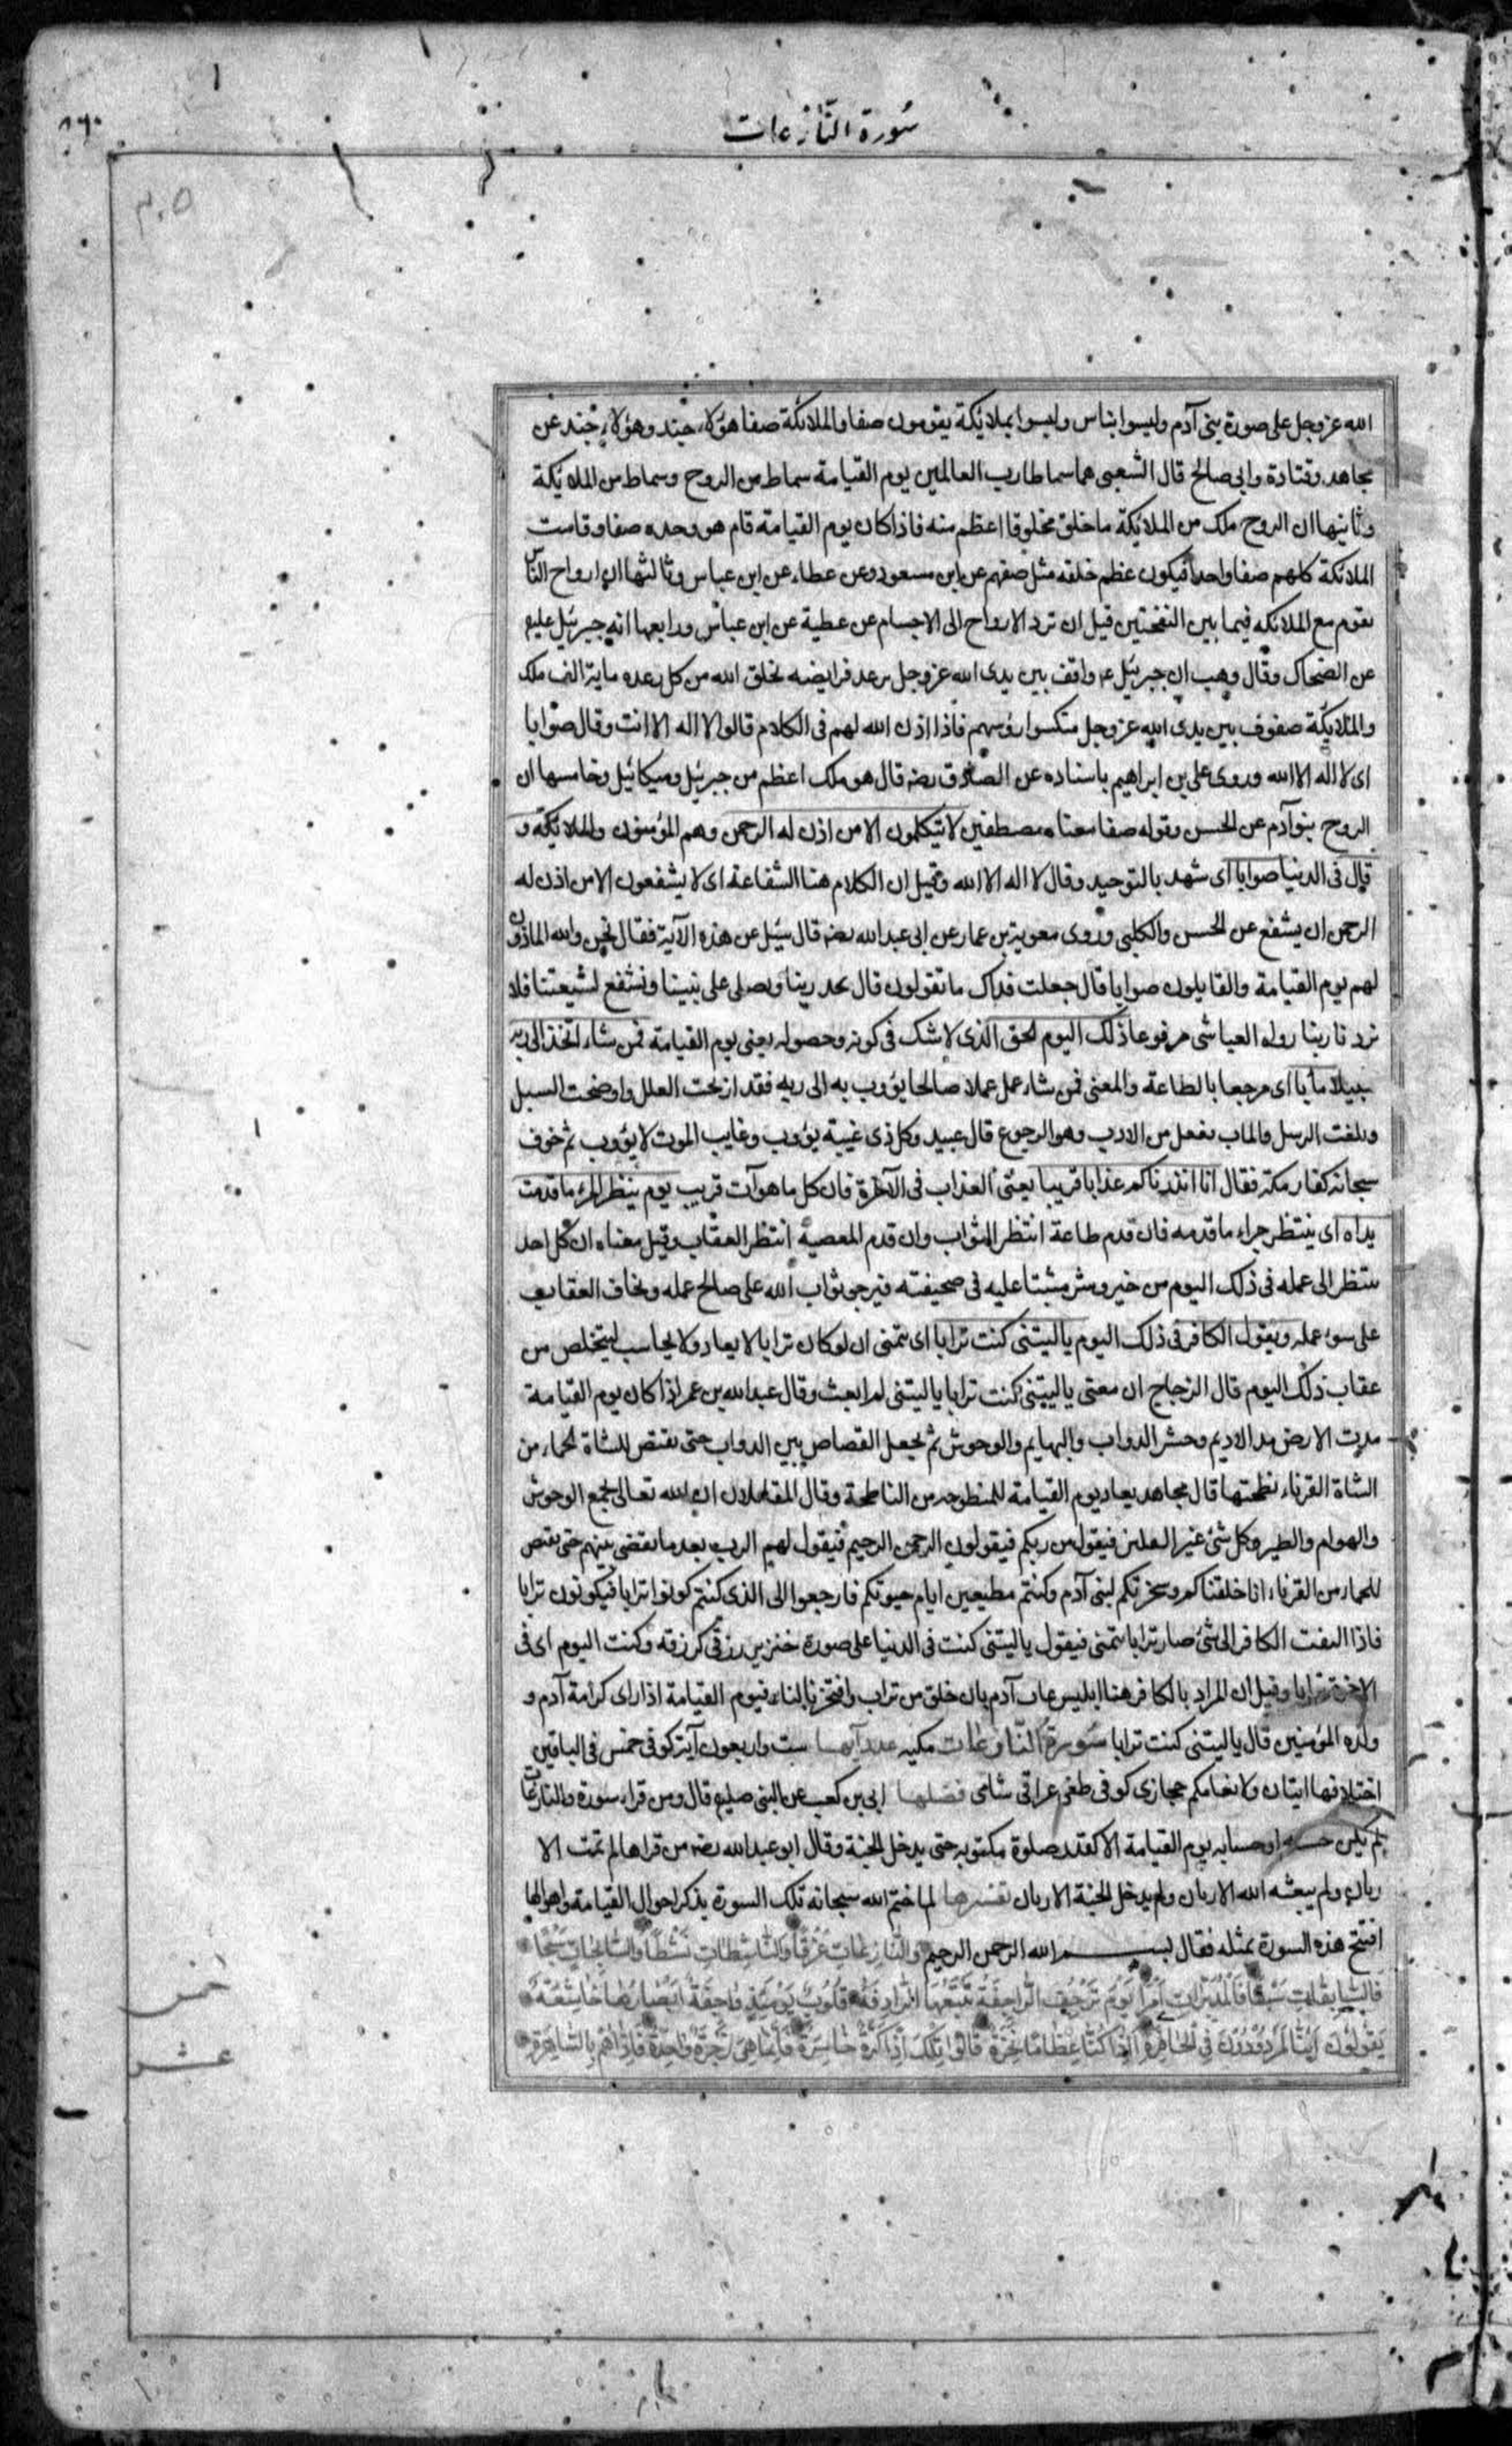 سورة النازعات
٨٦٠
٣٠٥
الله عز وجل على صورة بنى آدم وليسوا بناس وليسوا بملائكة يقومون صفا والملائكة صفا هؤلاء جند وهؤلاء جند عن
مجاهد وقتادة وابى صالح قال الشعبى هما سماطا رب العالمين يوم القيامة سماط من الروح وسماط من الملائكة
وثانيها ان الروح ملك من الملائكة ما خلق مخلوقا اعظم منه فاذا كان يوم القيامة قام هو وحده صفا وقامت
الملائكة كلهم صفا واحدا فيكون عظم خلقه مثل صفهم عن ابن مسعود وعن عطاء عن ابن عباس وثالثها ان ارواح الناس
تقوم مع الملائكه فيما بين النفختين قبل ان ترد الارواح الى الاجسام عن عطية عن ابن عباس ورابعها انه جبرئيل عليه
عن الضحاك وقال وهب ان جبرئيل ع واقف بين يدى الله عز وجل ترعد فرايضه يخلق الله من كل رعده ماية الف ملك
والملائكة صفوف بين يدى الله عز وجل منكسوا رؤسهم فاذا اذن الله لهم فى الكلام قالوا لا اله الا انت وقال صوابا
اى لا اله الا الله وروى على بن ابراهيم باسناده عن الصادق رضه قال هو ملك اعظم من جبرئيل وميكائيل وخامسها ان
الروح بنو آدم عن الحسن وقوله صفا معناه مصطفين لا يتكلمون الا من اذن له الرحمن وهم المؤمنون والملائكة و
قال فى الدنيا صوابا اى شهد بالتوحيد وقال لا اله الا الله وقيل ان الكلام هنا الشفاعة اى لا يشفعون الا من اذن له
الرحمن ان يشفع عن الحسن والكلبى وروى معوية بن عمار عن ابى عبد الله رضه قال سئل عن هذه الآية فقال نحن والله الماذون
لهم يوم القيامة والقايلون صوابا قال جعلت فداك ما تقولون قال نحمد ربنا ونصلى على نبينا ونشفع لشيعتنا فلا
يردنا ربنا رواه العياشى مرفوعا ذلك اليوم الحق الذى لا شك فى كونه وحصوله يعنى يوم القيامة فمن شاء اتخذ الى ربه
سبيلا مآبا اى مرجعا بالطاعة والمعنى فمن شاء عمل عملا صالحا يؤوب به الى ربه فقد ازيحت العلل واوضحت السبل
وبلغت الرسل والماب مفعل من الاوب وهو الرجوع قال عبيد وكل ذى غيبة يؤوب وغايب الموت لا يؤوب ثم خوف
سبحانه كفار مكة فقال انا انذرناكم عذابا قريبا يعنى العذاب فى الآخرة فان كل ما هو آت قريب يوم ينظر المرء ما قدمت
يداه اى ينتظر جزاء ما قدمه فان قدم طاعة انتظر الثواب وان قدم المعصية انتظر العقاب وقيل معناه ان كل احد
ينتظر الى عمله فى ذلك اليوم من خير وشر مثبتا عليه فى صحيفته فيرجو ثواب الله على صالح عمله ويخاف العقاب
على سوء عمله ويقول الكافر فى ذلك اليوم يا ليتنى كنت ترابا اى يتمنى ان لو كان ترابا لا يعاد ولا يحاسب ليتخلص من
عقاب ذلك اليوم قال الزجاج ان معنى يا ليتنى كنت ترابا يا ليتنى لم ابعث وقال عبد الله بن عمر اذا كان يوم القيامة
مدت الارض مد الاديم وحشر الدواب والبهايم والوحوش ثم يجعل القصاص بين الدواب حتى يقتص للشاة الجماء من
الشاة القرناء نطحتها قال مجاهد يعاد يوم القيامة للمنطوحه من الناطحة وقال المقاتلان ان الله تعالى يجمع الوحوش
والهوام والطير وكل شئ غير الثقلين فيقول من ربكم فيقولون الرحمن الرحيم فيقول لهم الرب بعد ما يقضى بينهم حتى يقتص
للجماء من القرناء انا خلقناكم وسخرتكم لبنى آدم وكنتم مطيعين ايام حيوتكم فارجعوا الى الذى كنتم كونوا ترابا فيكونون ترابا
فاذا التفت الكافر الى شئ صار ترابا يتمنى فيقول يا ليتنى كنت فى الدنيا على صورة خنزير رزقى كرزقه وكنت اليوم اى فى
الاخرة ترابا وقيل ان المراد بالكافر هنا ابليس عاب آدم بان خلق من تراب وافتخر بالنار فيوم القيامة اذا راى كرامة آدم و
ولده المؤمنين قال يا ليتنى كنت ترابا سورة النازعات مكيه عدد آيها ست واربعون آية كوفى خمس فى الباقين
اختلافها ايتان ولانعامكم حجازى كوفى طغى عراقى شامى فضلها ابى بن كعب عن النبى صليه قال ومن قراء سورة والنازعات
لم يكن حبسه وحسابه يوم القيامة الا كقدر صلوة مكتوبة حتى يدخل الجنة وقال ابو عبد الله رضه من قراها لم تمت الا
ريان ولم يبعثه الله الا ريان ولم يدخل الجنة الا ريان تفسيرها لما ختم الله سبحانه تلك السورة بذكر احوال القيامة واهوالها
افتتح هذه السورة بمثله فقال بسم الله الرحمن الرحيم والنازعات غرقا والناشطات نشطا والسابحات سبحا
فالسابقات سبقا فالمدبرات امرا يوم ترجف الراجفة تتبعها الرادفة قلوب يومئذ واجفة ابصارها خاشعة
يقولون ءانا لمردودون فى الحافرة ءاذا كنا عظاما نخرة قالوا تلك اذا كرة خاسرة فانما هى زجرة واحدة فاذا هم بالساهرة
خمس
عشر